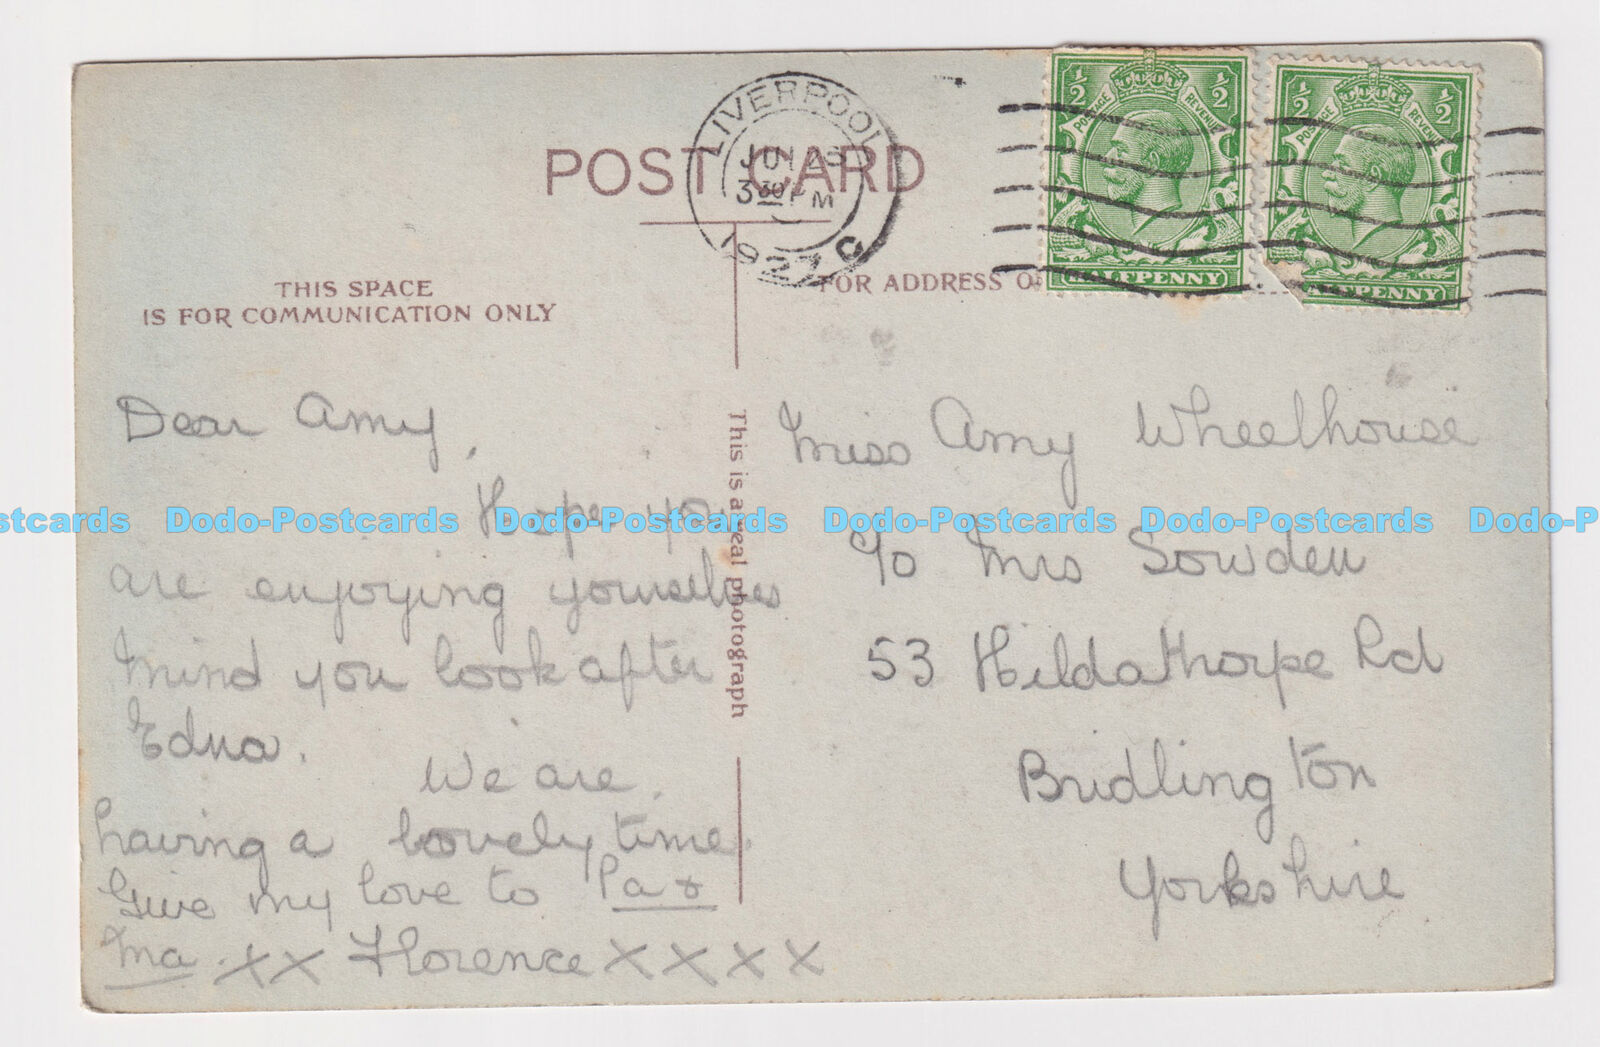 POST CARD
LIVERPOOL
3 30 PM
1927
C
½ ½
POSTAGE REVENUE
HALFPENNY
½ ½
POSTAGE REVENUE
HALFPENNY
THIS SPACE
IS FOR COMMUNICATION ONLY
FOR ADDRESS O
This is a real photograph
Dear Amy,
Hope you
are enjoying yourselves
mind you look after
Edna.
We are
having a lovely time.
Give my love to Pa &
Ma. XX Florence XXXX
Miss Amy Wheelhouse
c/o Mrs Sowden
53 Hildathorpe Rd
Bridlington
Yorkshire
stcards Dodo-Postcards Dodo-Postcards Dodo-Postcards Dodo-Postcards Dodo-P